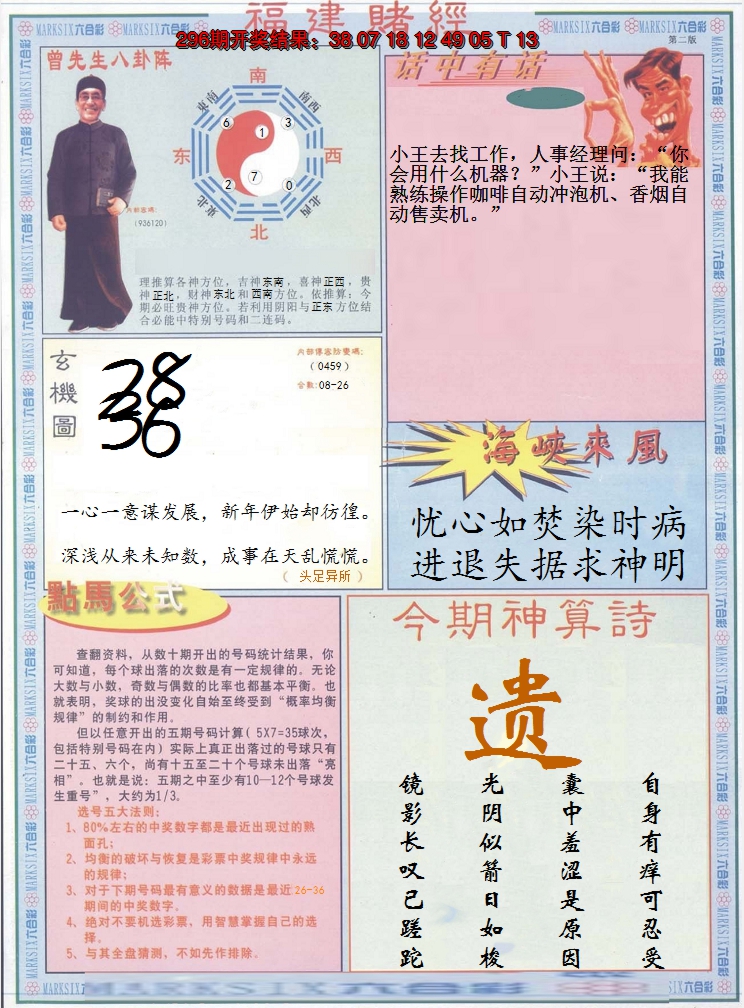 福建赌經
296期开奖结果：38 07 18 12 49 05 T 13
MARKSIX六合彩
第二版
曾先生八卦阵
南
東南
南西
6
1
3
东
西
2
7
0
東北
北西
北
内部密碼：
(936120)
理推算各神方位，吉神东南，喜神正西，贵
神正北，财神东北和西南方位。依推算：今
期必旺贵神方位。若利用阴阳与正东方位结
合必能中特别号码和二连码。
话中有话
小王去找工作，人事经理问：“你
会用什么机器？”小王说：“我能
熟练操作咖啡自动冲泡机、香烟自
动售卖机。”
玄機圖
38
36
(0459)
合数:08-26
一心一意谋发展，新年伊始却彷徨。
深浅从来未知数，成事在天乱慌慌。
（ 头足异所 ）
海峽來風
忧心如焚染时病
进退失据求神明
點馬公式
查翻资料，从数十期开出的号码统计结果，你
可知道，每个球出落的次数是有一定规律的。无论
大数与小数，奇数与偶数的比率也都基本平衡。也
就表明，奖球的出没变化自始至终受到“概率均衡
规律”的制约和作用。
但以任意开出的五期号码计算（5X7=35球次，
包括特别号码在内）实际上真正出落过的号球只有
二十五、六个，尚有十五至二十个号球未出落“亮
相”。也就是说：五期之中至少有10—12个号球发
生重号”，大约为1/3。
选号五大法则：
1、80%左右的中奖数字都是最近出现过的熟
面孔；
2、均衡的破坏与恢复是彩票中奖规律中永远
的规律；
3、对于下期号码最有意义的数据是最近26-36
期间的中奖数字。
4、绝对不要机选彩票，用智慧掌握自己的选
择。
5、与其全盘猜测，不如先作排除。
今期神算詩
遗
自身有痒可忍受
囊中羞涩是原因
光阴似箭日如梭
镜影长叹已蹉跎
MARKSIX六合彩